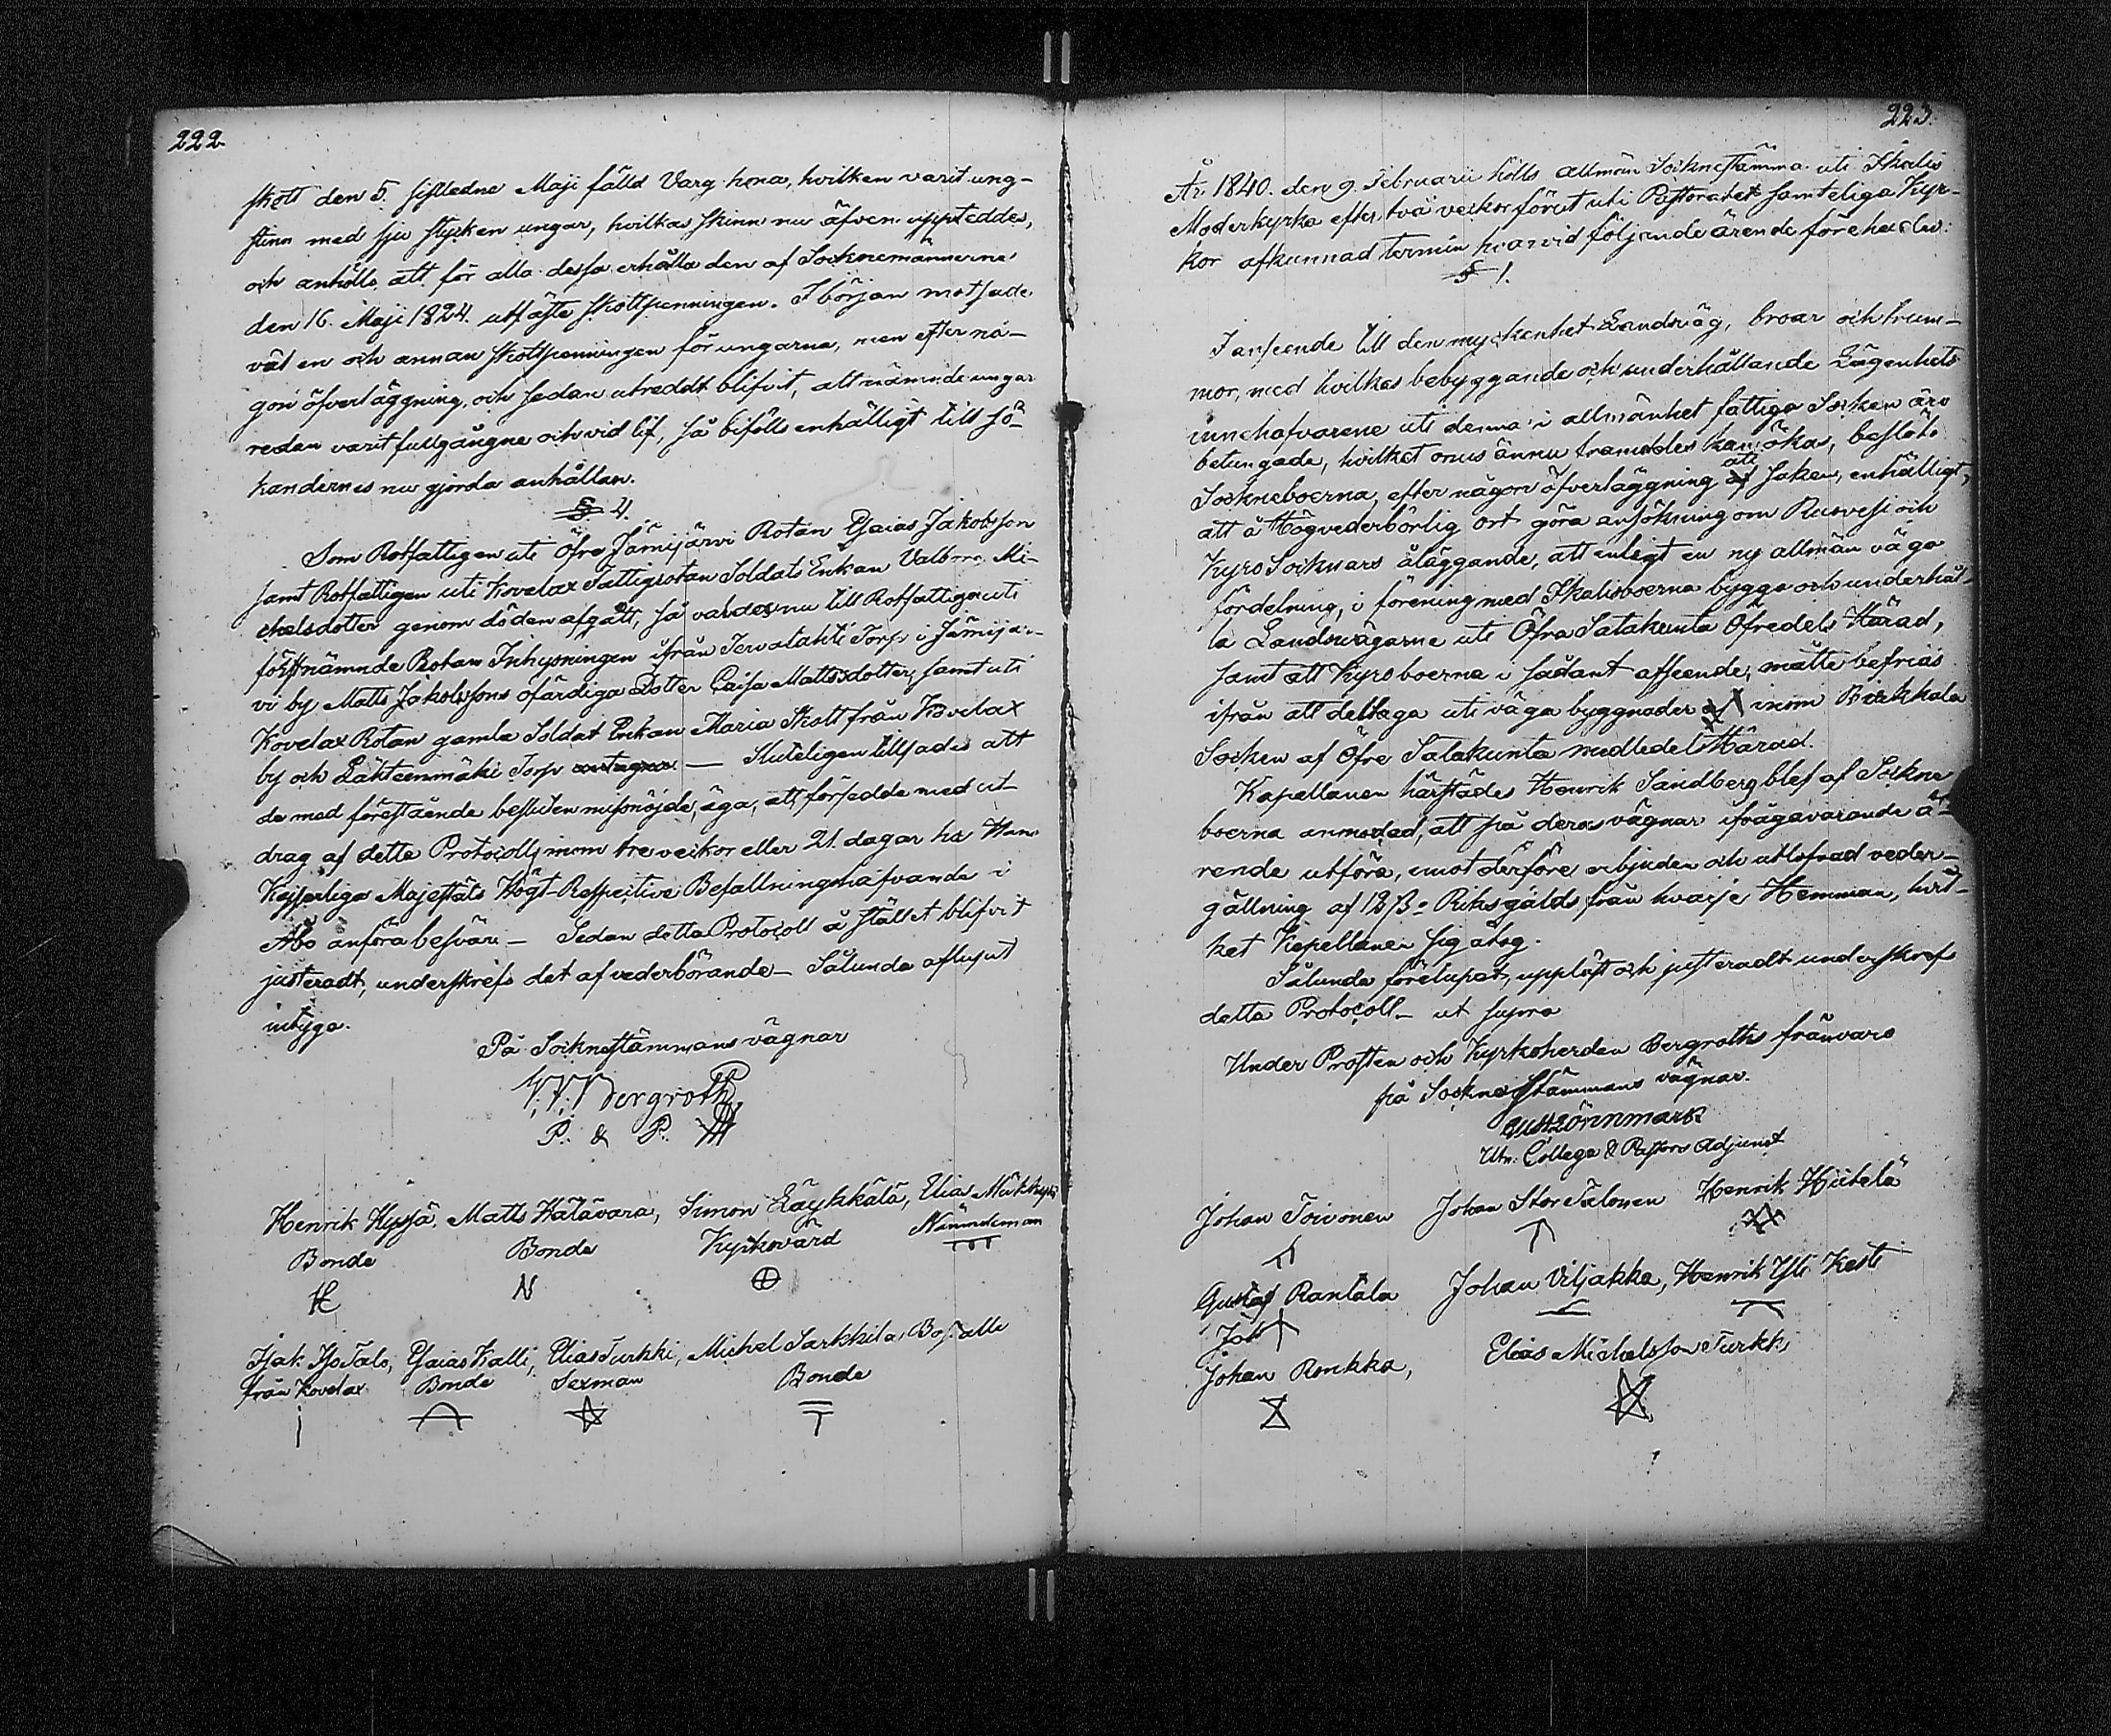 222.
skott den 5. sistledne Maji fälld Varg hona, hvilken varit ung-
stinn med sju stycken ungar, hvilkas skinn nu äfven uppteddes,
och anhölls, att för alla dessa erhålla den af Socknemännerne
den 16. Maji 1824. utfäste skottpenningen. I början motsade
väl en och annan skottpenningen för ungarna, men efter nå-
gon öfverläggning, och sedan utreddt blifvit, att nämnde ungar
redan varit fullgångne och vid lif, så bifölls enhälligt till sö-
kandernes nu gjorda anhållan.
§ 4.
Som Rotfattigen uti Öfre Jämijärvi Rotan Esaias Jakobsson
samt Rotfattigen uti Kovelax Fattigrotan Soldats Enkan Valborg Mi-
chelsdotter genom döden afgått, så valdes nu till Rotfattiga uti
förstnämnde Rotan Inhysningen ifrån Tervalahti Torp i Jämijär-
vi by Matts Jakobssons ofärdiga Dotter Caisa Mattsdotter, samt uti
Kovelax Rotan gamla Soldat Enkan Maria Skott från Kovelax
by och Lähteenmäki Torp antagna — Sluteligen tillsades att
de med förestående besluten missnöjde, äga, att försedde med ut-
drag af detta Protocoll, inom tre veckor eller 21. dagar hos Hans
Kejserliga Majestäts Högt-Respective Befallningshafvande i
Åbo anföra besvär. — Sedan detta Protocoll å stället blifvit
justeradt, underskrefs det af vederbörande — Sålunda aflupit
intyga.
På Socknestämmans vägnar
Bergroth
P. & P.
Henrik Hyysjä, Matts Hätävara, Simon Läykkälä, Elias
Bonde Bonde Kyrkovärd Nämndeman
Isak Iso Talo, Esaias Kalli, Elias Turkki, Michel Sarkkila, Bof. alle
från Kovelax Bonde Sexman Bonde
223.
År 1840. den 9. Februarii hölls allmän Socknestämma uti Ikalis
Moderkyrka efter två veckor förut uti Pastoratet samteliga Kyr-
kor afkunnad termin hvarvid följande ärende förehades:
§ 1.
I anseende till den myckenhet Landsväg, broar och trum-
mor, med hvilkas bebyggande och underhållande Lägenhets
innehafvarene uti denna i allmänhet fattiga Socken äro
betungade, hvilket onus ännu framdeles kan ökas, beslöto
Sockneboerna, efter någon öfverläggning af uti saken, enhälligt,
att å Högvederbörlig ort göra ansökning om Ruovesi och
Kyro Socknars åläggande, att enligt en ny allmän väga
fördelning, i förening med Ikalisboerna bygga och underhål-
la Landsvägarne uti Öfra Satakunta Öfredels Härad,
samt att Kyroboerna i sådant afseende, måtte befrias
ifrån att deltaga uti väga byggnader inom Birkkala
Socken af Öfre Satakunta medledels Härad.
Kapellanen härstädes Henrik Sandberg blef af Sockne
boerna anmodad, att på deras vägnar ifrågavarande ä-
rende utföra, emot derföre erbjuden och utlofvad veder-
gällning af 12 ß Riksgälds från hvarje Hemman, hvil-
ket Kapellanen sig åtog.
Sålunda förelupet, uppläst och justeradt underskrefs
detta Protocoll — ut supra
Under Prosten och Kyrkoherden Bergroths frånvaro
på Sockne Stämmans vägnar.
Gust. Lönnmark
Utn: Collega & Pastors Adjunct
Johan Toivonen Johan Stor Talonen Henrik Hiitelä
Gustaf Rantala Johan Viljakka, Henrik Yli Kesti
Joh
Johan Ronkka, Elias Michelsson Turkki